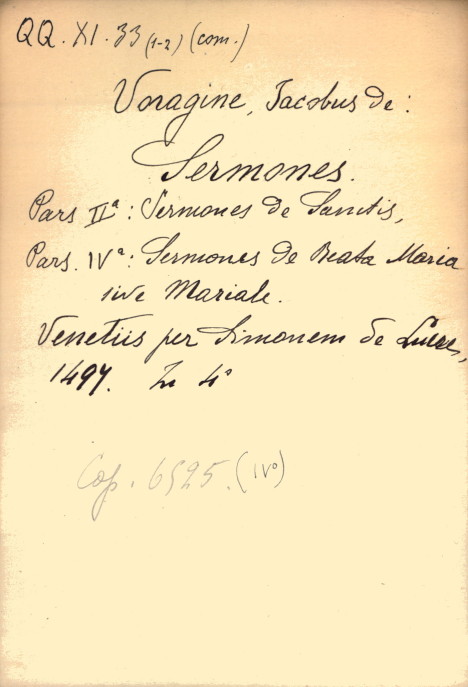 QQ. XI. 33 (1-2) (com.)
Voragine, Jacobus de:
Sermones.
Pars IIª: Sermones de Sanctis,
Pars. IVª: Sermones de Beata Maria
sive Mariale.
Venetiis per Simonem de Luere,
1497. In 4°
Cop. 6525. (IV°)